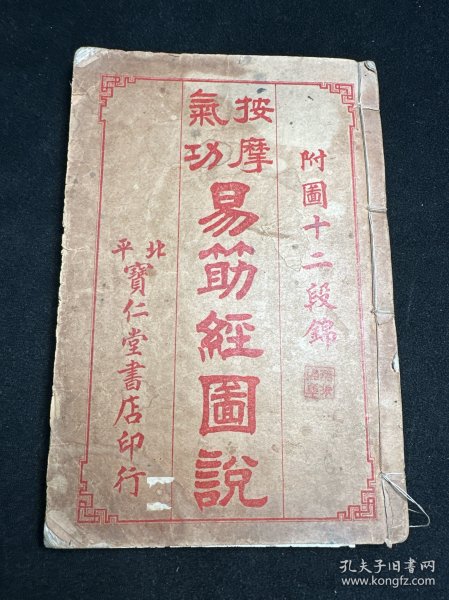 附圖十二段錦
按摩
氣功
易筋經圖說
北平
寶仁堂書店印行
孔夫子旧书网
www.kongfz.com